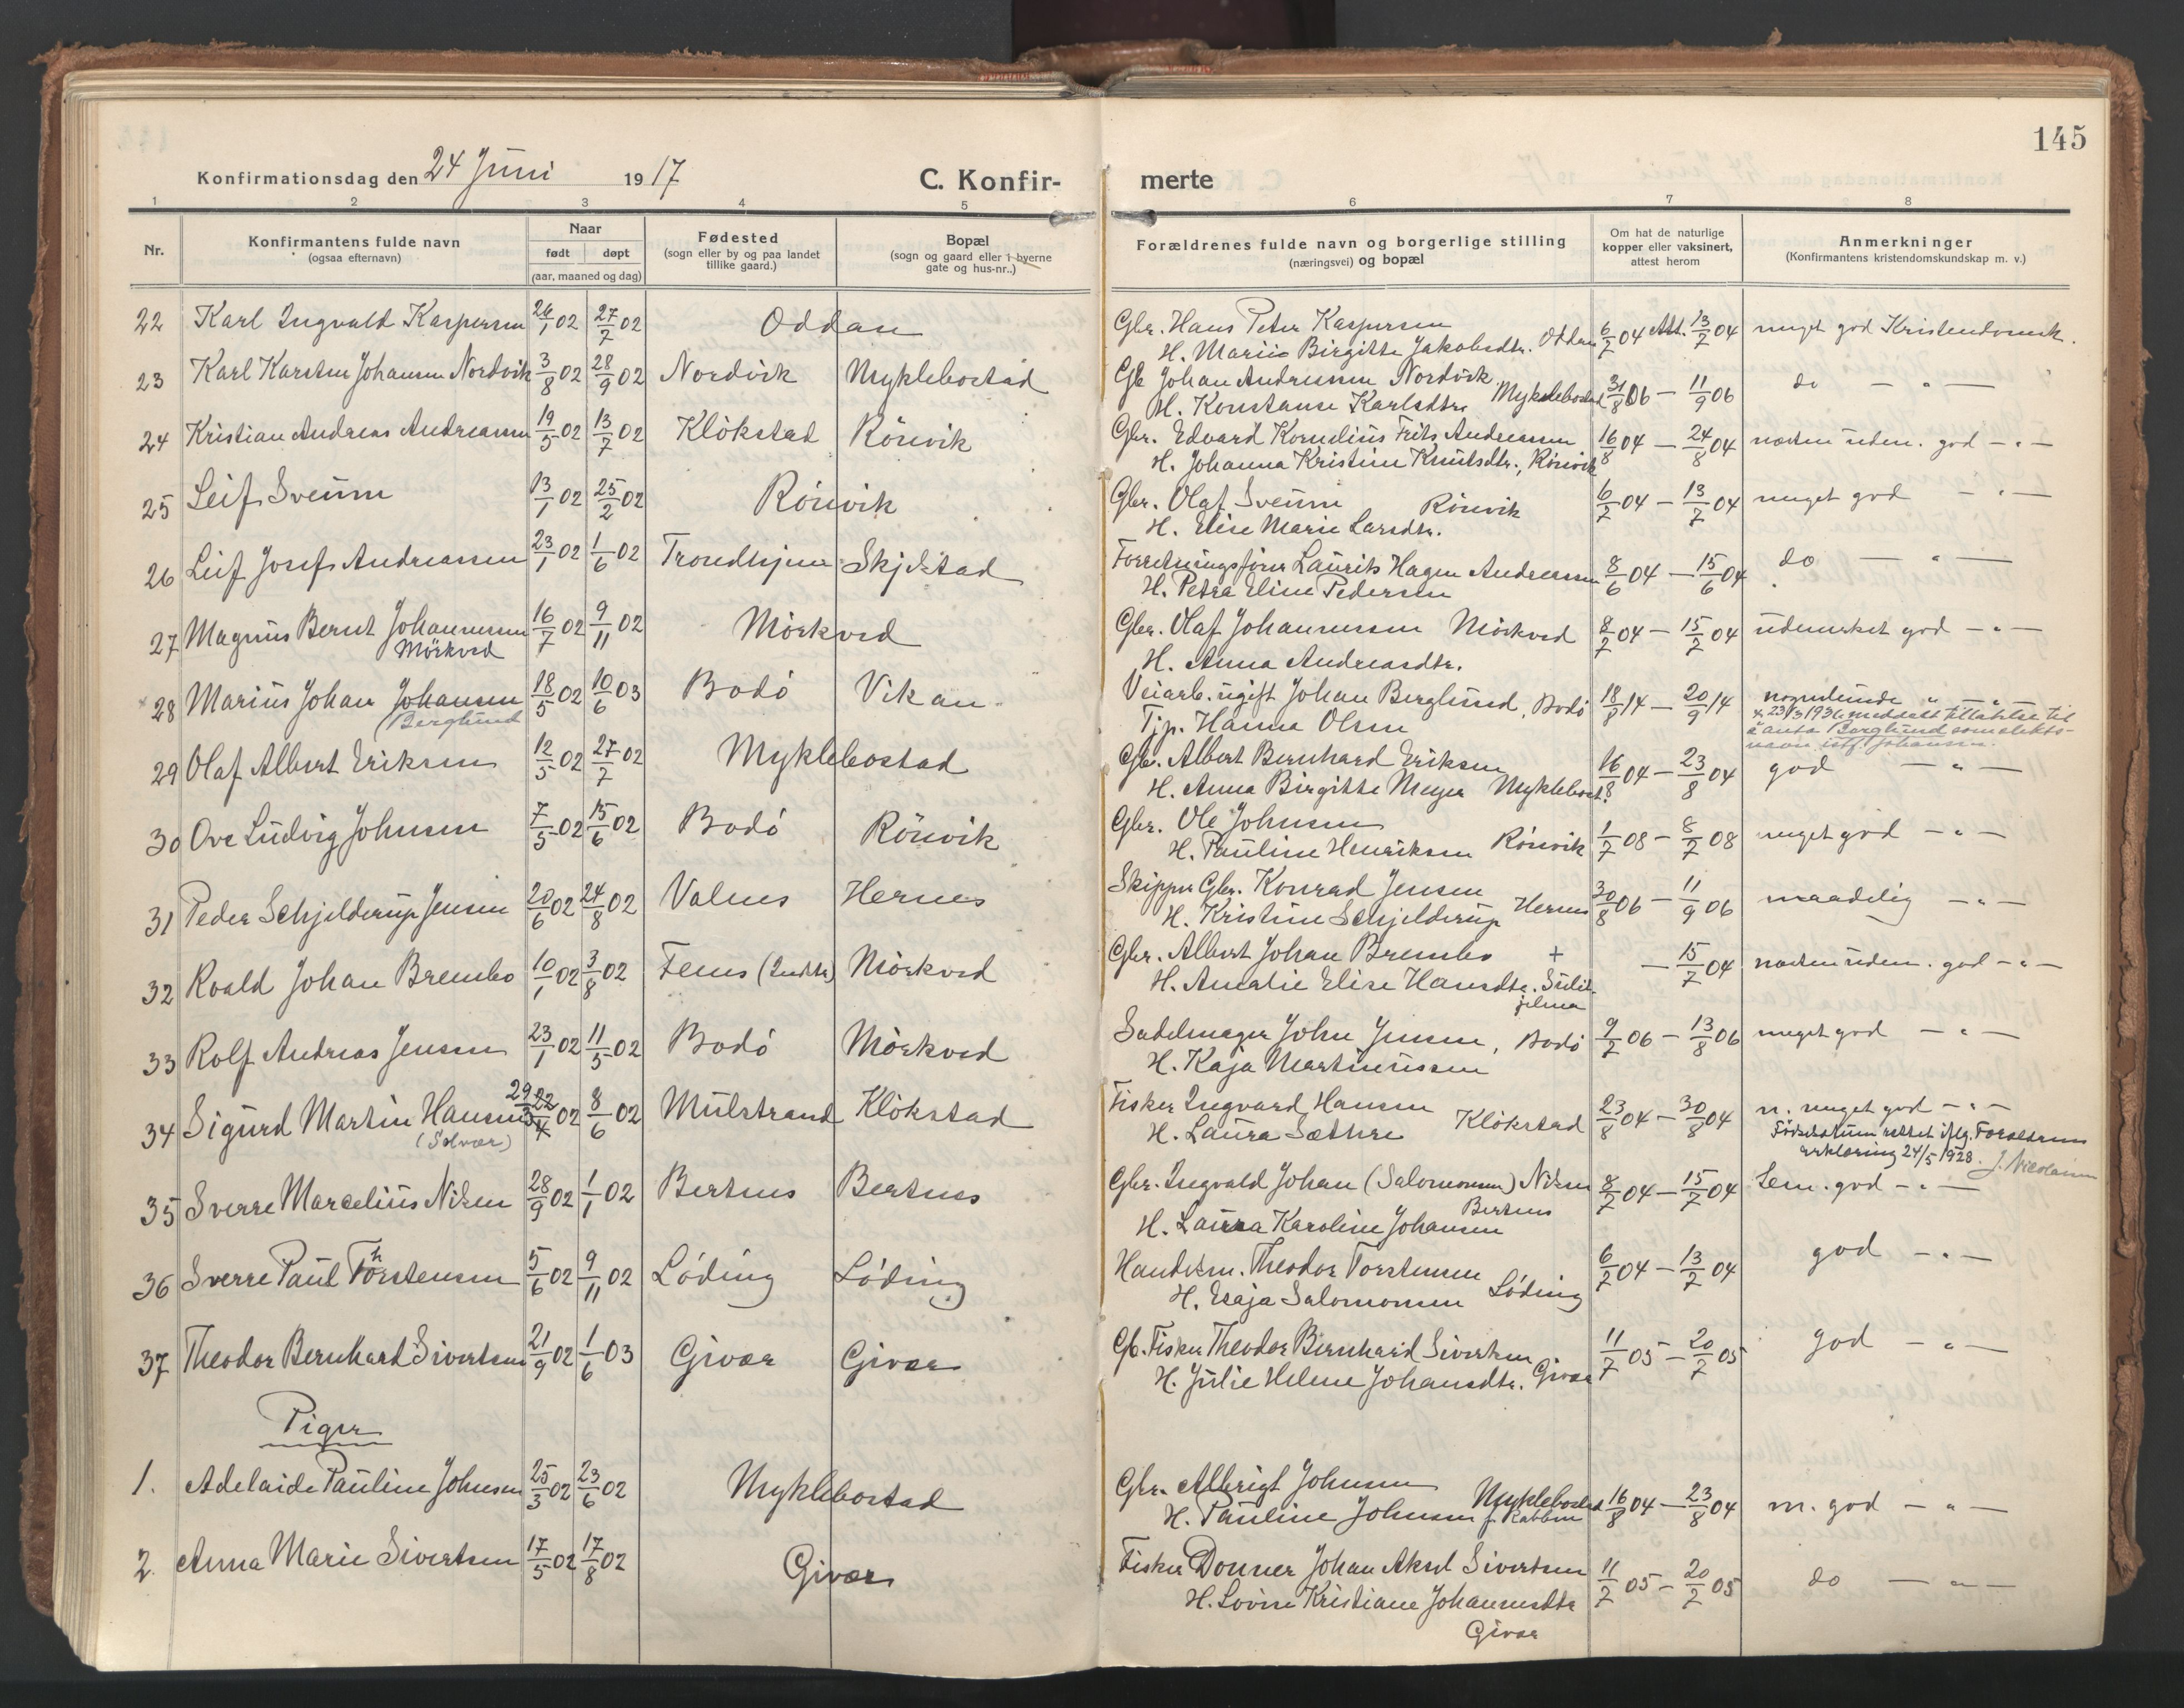 145
Konfirmationsdag den 24 Juni 1917
C. Konfir-
merte
1 2 3 4 5 6 7 8
Nr.
Konfirmantens fulde navn
(ogsaa efternavn)
Naar
født døpt
(aar, maaned og dag)
Fødested
(sogn eller by og paa landet
tillike gaard.)
Bopæl
(sogn og gaard eller i byerne
gate og hus-nr.)
Forældrenes fulde navn og borgerlige stilling
(næringsvei) og bopæl
Om hat de naturlige
kopper eller vaksinert,
attest herom
Anmerkninger
(Konfirmantens kristendomskundskap m. v.)
22 Karl Ingvald Kaspersen 26/1 02 27/7 02 Oddan
Gbr. Hans Peter Kaspersen
H. Marie Birgitte Jakobsdtr. Oddan 6/7 04 Att. 13/7 04 meget god Kristendomsk.
23 Karl Karsten Johansen Nordvik 3/8 02 28/9 02 Nordvik Myklebostad
Gb Johan Andreassen Nordvik
H. Konstanse Karlsdtr. Myklebostad 31/8 06 — 11/9 06 do — " —
24 Kristian Andreas Andreassen 19/5 02 13/7 02 Klökstad Rönvik
Gbr. Edvard Kornelius Frits Andreassen
H. Johanna Kristine Knutsdtr., Rönvik 16/8 04 — 24/8 04 næsten uden. god — " —
25 Leif Sveum 13/1 02 25/2 02 Rönvik
Gbr. Olaf Sveum Rönvik
H. Elise Marie Larsdtr. 6/7 04 — 13/7 04 meget god — " —
26 Leif Josef Andreassen 23/1 02 1/6 02 Trondhjem Skjelstad
Forretningsfører Laurits Hagen Andreassen
H. Petra Eline Pedersen 8/6 04 — 15/6 04 do — " —
27 Magnus Bernt Johannessen 16/7 02 9/11 02 Mörkved
Mörkved
Gbr. Olaf Johannessen Mörkved
H. Anna Andreasdtr. 8/7 04 — 15/7 04 udmerket god — " —
28 Marius Johan Johansen 18/5 02 10/6 03 Bodö Vikan
(Berglund
Veiarb. ugift Johan Berglund, Bodö
Tjp. Hanna Olsen 18/8 14 — 20/9 14 nogenlunde " — " —
x 23/3 1931 meddelt tillatelse til
å anta Berglund som slekts-
navn istf. Johansen.
29 Olaf Albert Eriksen 12/5 02 27/7 02 Myklebostad
Gbr. Albert Bernhard Eriksen
H. Anna Birgitte Meyer Myklebost. 16/8 04 — 23/8 04 god — " —
30 Ove Ludvig Johnsen 7/5 02 15/6 02 Bodö Rönvik
Gbr. Ole Johnsen
H. Pauline Henriksen Rönvik 1/7 08 — 8/7 08 meget god — " —
31 Peder Schjelderup Jensen 20/6 02 24/8 02 Valnes Hernes
Skipper Gbr. Konrad Jensen
H. Kristine Schjelderup Hernes 30/8 06 — 11/9 06 maadelig — " —
32 Roald Johan Brembo 10/1 02 3/8 02 Femes Mörkved
Gbr. Albert Johan Brembo +
H. Amalie Elise Hansdtr. Sulit-
jelma — 15/7 04 næsten uden. god — " —
33 Rolf Andreas Jensen 23/1 02 11/5 02 Bodö Mörkved
Sadelmager John Jensen, Bodö
H. Kaja Martinussen 9/7 06 — 13/8 06 meget god — " —
34 Sigurd Martin Hansen 29/3 22/4 02 8/6 02 Mulstrand Klökstad
(Solvær)
Fisker Ingvard Hansen
H. Laura Sæthre Klökstad 23/8 04 — 30/8 04 n. meget god — " —
Födselsdatum rettet iflg. Foreldrenes
erklæring 24/5 1928. J. Nicolaisen
35 Sverre Marcelius Nilsen 28/9 02 1/1 02 Bertnes Bertnes
Gbr. Ingvald Johan (Salomonsen) Nilsen
Bertnes
H. Laura Karoline Johansen 8/7 04 — 15/7 04 Tem. god — " —
36 Sverre Paul Thorstensen 5/6 02 9/11 02 Löding Löding
Handelsm. Theodor Torstensen
H. Esaja Salomonsen Löding 6/7 04 — 13/7 04 god — " —
37 Theodor Bernhard Sivertsen 21/9 02 1/6 03 Givær Givær
Gb. Fisker Theodor Bernhard Sivertsen
H. Julie Helene Johansdtr. Givær 11/7 05 — 20/7 05 god — " —
Piger
1. Adelaide Pauline Johnsen 25/3 02 23/6 02 Myklebostad
Gbr. Albrigt Johnsen Myklebostad
H. Pauline Johnsen 16/8 04 — 23/8 04 m. god — " —
2. Anna Marie Sivertsen 17/5 02 17/8 02 Givær
Fisker Donner Johan Aksel Sivertsen
H. Lovise Kristiane Johannesdtr
Givær 11/7 05 — 20/7 05 do — " —